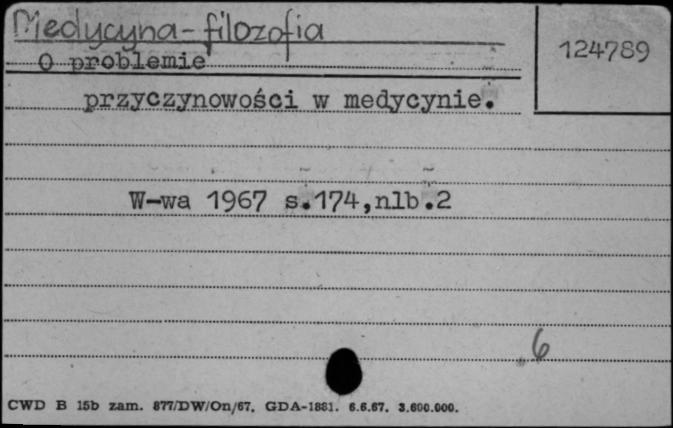 Medycyna-filozofia
124789
O problemie
przyczynowości w medycynie.
W-wa 1967 s.174,nlb.2
6
CWD B 15b zam. 877/DW/On/67. GDA-1881. 6.6.67. 3.600.000.